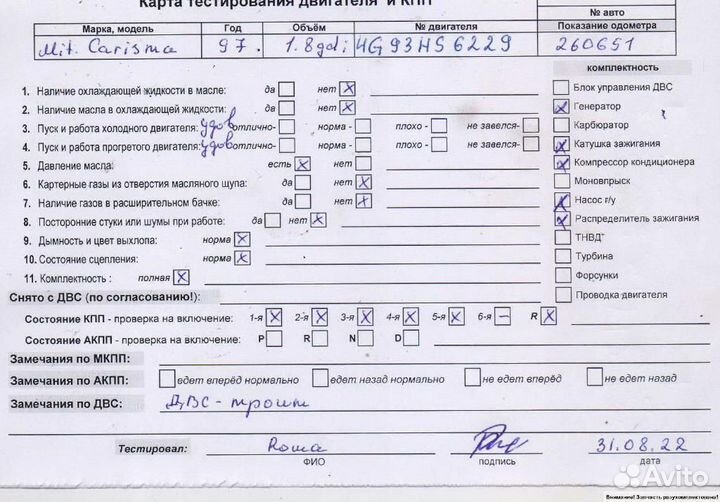 Карта тестирования двигателя и КПП
№ авто
Марка, модель Год Объём № двигателя Показание одометра
Mit. Carisma 97. 1.8gdi 4G93HS6229 260651
комплектность
1. Наличие охлаждающей жидкости в масле: да нет X
2. Наличие масла в охлаждающей жидкости: да нет X
3. Пуск и работа холодного двигателя: удов отлично- норма - плохо - не завелся-
4. Пуск и работа прогретого двигателя: удов отлично- норма - плохо - не завелся-
5. Давление масла: есть X нет
6. Картерные газы из отверстия масляного щупа: да нет X
7. Наличие газов в расширительном бачке: да нет X
8. Посторонние стуки или шумы при работе: да нет X
9. Дымность и цвет выхлопа: норма X
10. Состояние сцепления: норма X
11. Комплектность : полная X
Блок управления ДВС
X Генератор
Карбюратор
X Катушка зажигания
X Компрессор кондиционера
Моновпрыск
X Насос г/у
X Распределитель зажигания
ТНВД
Турбина
Форсунки
Проводка двигателя
Снято с ДВС (по согласованию!):
Состояние КПП - проверка на включение: 1-я X 2-я X 3-я X 4-я X 5-я X 6-я – R X
Состояние АКПП - проверка на включение: P R N D
Замечания по МКПП:
Замечания по АКПП: едет вперёд нормально едет назад нормально не едет вперёд не едет назад
Замечания по ДВС: ДВС - троит
Тестировал: Roma 31.08.22
ФИО подпись дата
Avito
Внимание! Запчасть разукомплектована!